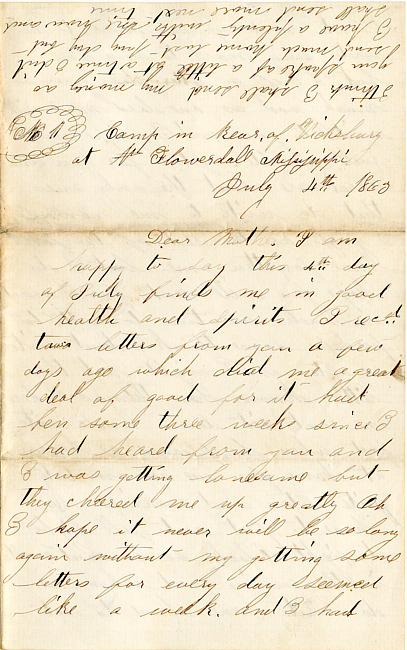 I think I shall send my money as
you spoke of a little at a time I did
send much home last pay day but
I have a plenty with me now and
shall send more next
time
No 1
Camp in Rear of Vicksburg
at Ft Flowerdall Mississippi
July 4th 1863
Dear Moth. I am
happy to say this 4th day
of July finds me in good
health and spirits I recd
two letters from you a few
days ago which did me a great
deal of good for it had
ben some three weeks since I
had heard from you and
I was getting lonesame but
they cheared me up greatly Oh
I hope it never will be so long
again without my getting some
letters for every day seemed
like a week. and I had